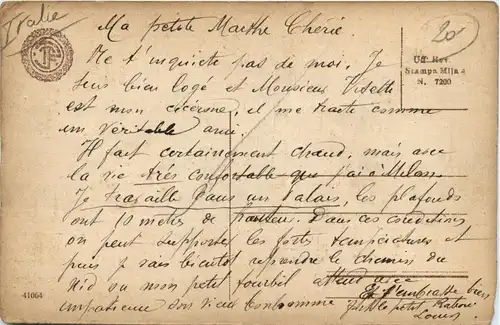 Italie
20
Uff. Rev.
Stampa Milano
N. 7200
Ma petite Marthe Chérie
Ne t'inquiète pas de moi. Je
suis bien logé et Monsieur
est mon cicerone, il me traite comme
un véritable ami.
Il fait certainement chaud, mais avec
la vie très confortable que j'ai à Milan
Je travaille dans un Palais, les plafonds
ont 10 mètres de hauteur. Dans ces conditions
on peut supporter les fortes températures et
puis je vais bientôt reprendre le chemin du
Nid où mon petit attend avec
impatience son vieux
Je t'embrasse bien
petit
Louis
41064